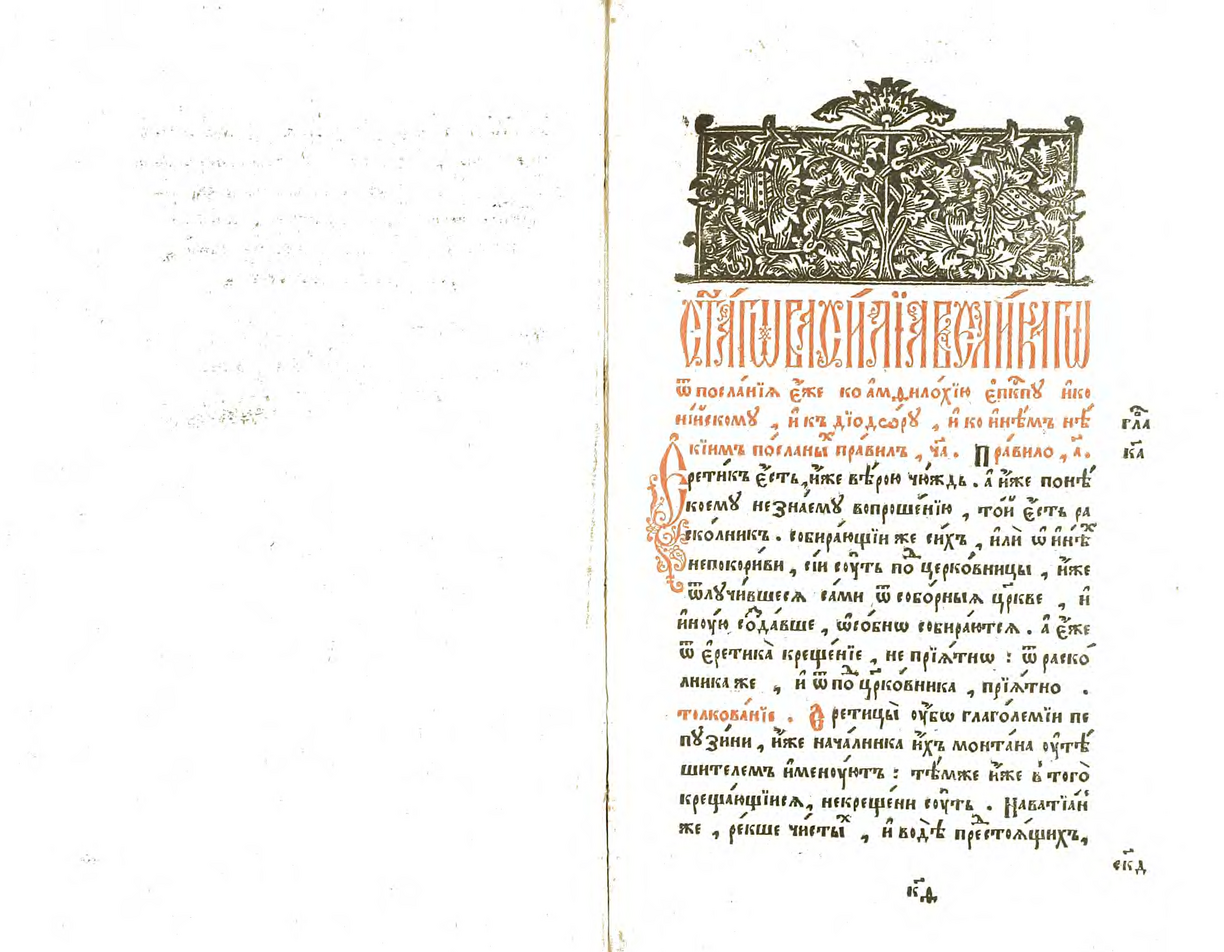 ст҃а́гѡ васи́лїа вели́кагѡ
ѿ посла́нїѧ є҆́же ко а҆мѳило́хїю є҆пкⷭ҇пꙋ и҆ко
ні́йскомꙋ , и҆ къ дїодѡ́рꙋ , и҆ ко и҆нѣ́мъ нѣ́
гла
кїимъ по́сланыⷯ пра́вилъ , ч҃а . Пра́вило , а҃.
к҃а
Е҆рети́къ є҆́сть, и҆́же вѣ́рою чю́ждь . а҆ и҆́же понѣ́
коемꙋ незна́емꙋ вопроше́нїю , то́й є҆́сть ра
ско́лникъ . собира́ющїи же си́хъ , и҆лѝ ѡ҆ и҆нѣ́ⷯ
непокори́ви , сїи сꙋ́ть поⷣцерко́вницы , и҆́же
ѿлꙋчи́вшесѧ са́ми ѿ собо́рныѧ цр҃кве , и҆
и҆нꙋ́ю соⷥда́вше , ѡ҆со́бнѡ собира́ютсѧ . а҆ є҆́же
ѿ є҆ретика̀ креще́нїе , не прїѧ́тнѡ : ѿ раско́
лника же , и҆ ѿ поⷣцр҃ко́вника , прїѧ́тно .
толкова́нїе . Е҆ретицы̀ ᲂу҆́бѡ глаго́лемїи пе
пꙋзи́ни , и҆́же нача́лника и҆́хъ монта́на ᲂу҆тѣ́
шителемъ и҆менꙋ́ютъ : тѣ́мже и҆́же ѿ того̀
креща́ющїисѧ, некреще́ни сꙋ́ть . Наватїа́н
же , ре́кше чи́стыⷯ , и҆ водѣ̀ преⷣстоѧ́щихъ,
секд
к҃ѳ